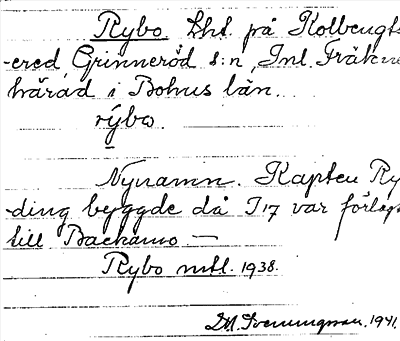 Rybo. Lht. på Kolbengts
-ered, Grinneröd s:n, Inl. Fräkne
härad i Bohus län.
rýbo.
Nynamn. Kapten Ry
-ding byggde då I 17 var förlagt
till Backamo —
Rybo mtl. 1938.
1941.